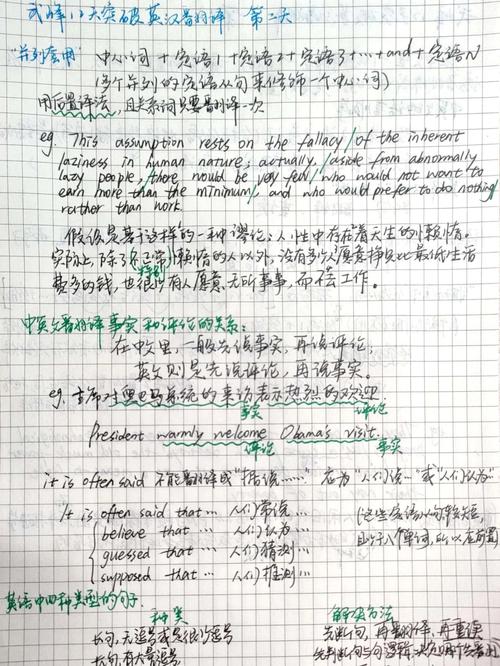 武峰12天突破英汉翻译 第二天
"并列套用" 中心词 + 定语1 + 定语2 + 定语3 + … + and + 定语N
(多个并列的定语从句来修饰一个中心词)
用后置译法, 且关系词只要翻译一次
eg. This assumption rests on the fallacy / of the inherent
laziness in human nature; actually, / aside from abnormally
lazy people, / there would be very few / who would not want to
earn more than the minimum, / and who would prefer to do nothing /
rather than work.
假设是基于这样的一种谬论: 人性中存在着天生的懒惰。
实际上, 除了不正常懒惰的人以外, 没有多少人愿意挣比最低生活
特别
费多的钱, 也很少有人愿意无所事事, 而不工作。
中英文翻译事实和评论的关系:
在中文里, 一般先说事实, 再说评论,
英文则是先说评论, 再说事实。
eg. 主席对奥巴马总统的来访表示热烈的欢迎.
事实 评论
President warmly welcome Obama's visit.
评论 事实
it is often said 不能翻译成"据说……" 应为"人们说…"或"人们认为"
It is often said that … 人们常说…
believe that … 人们认为…
guessed that … 人们猜测…
supposed that … 人们推测…
(这些定语从句较短,
且少于八个单词, 所以在前置
英语中四种类型的句子
种类 解决方法
长句, 无逗号或是很少逗号 先断句, 再翻译, 再重读
长句, 有大量逗号